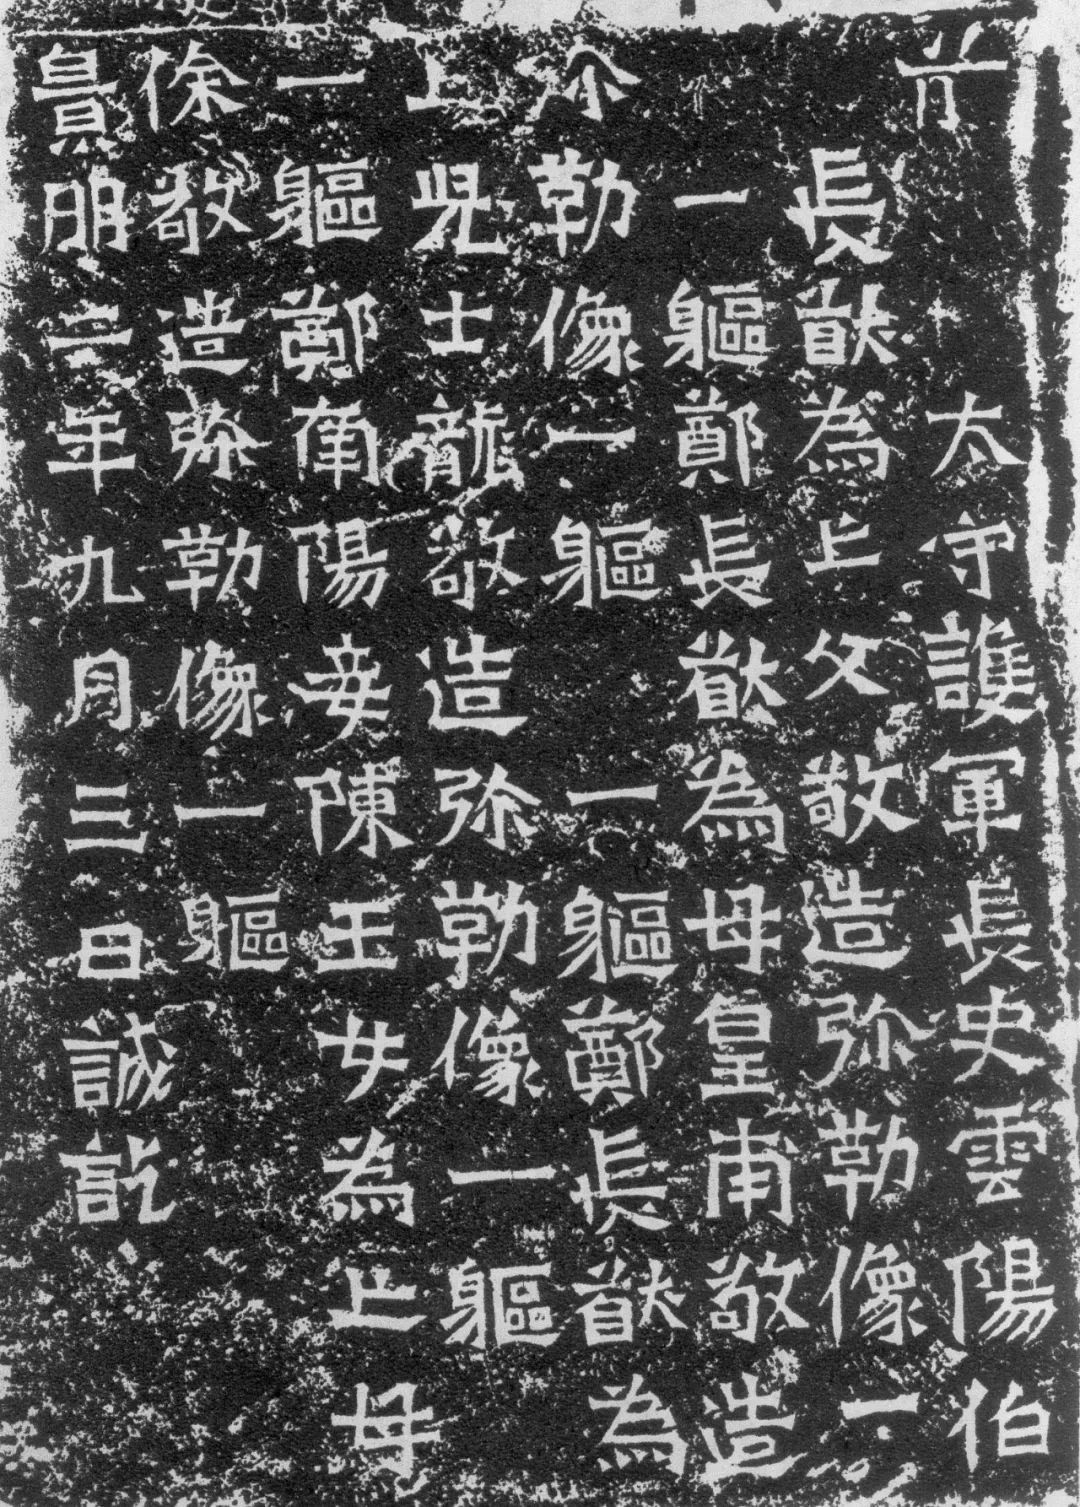 太守護軍長史雲陽伯
長猷為亡父敬造弥勒像一
一軀鄭長猷為母皇甫敬造
弥勒像一軀一軀鄭長猷為
亡兒士龍敬造弥勒像一軀
一軀鄭南陽妾陳玉女為亡母
徐敬造弥勒像一軀
景明二年九月三日誡訖